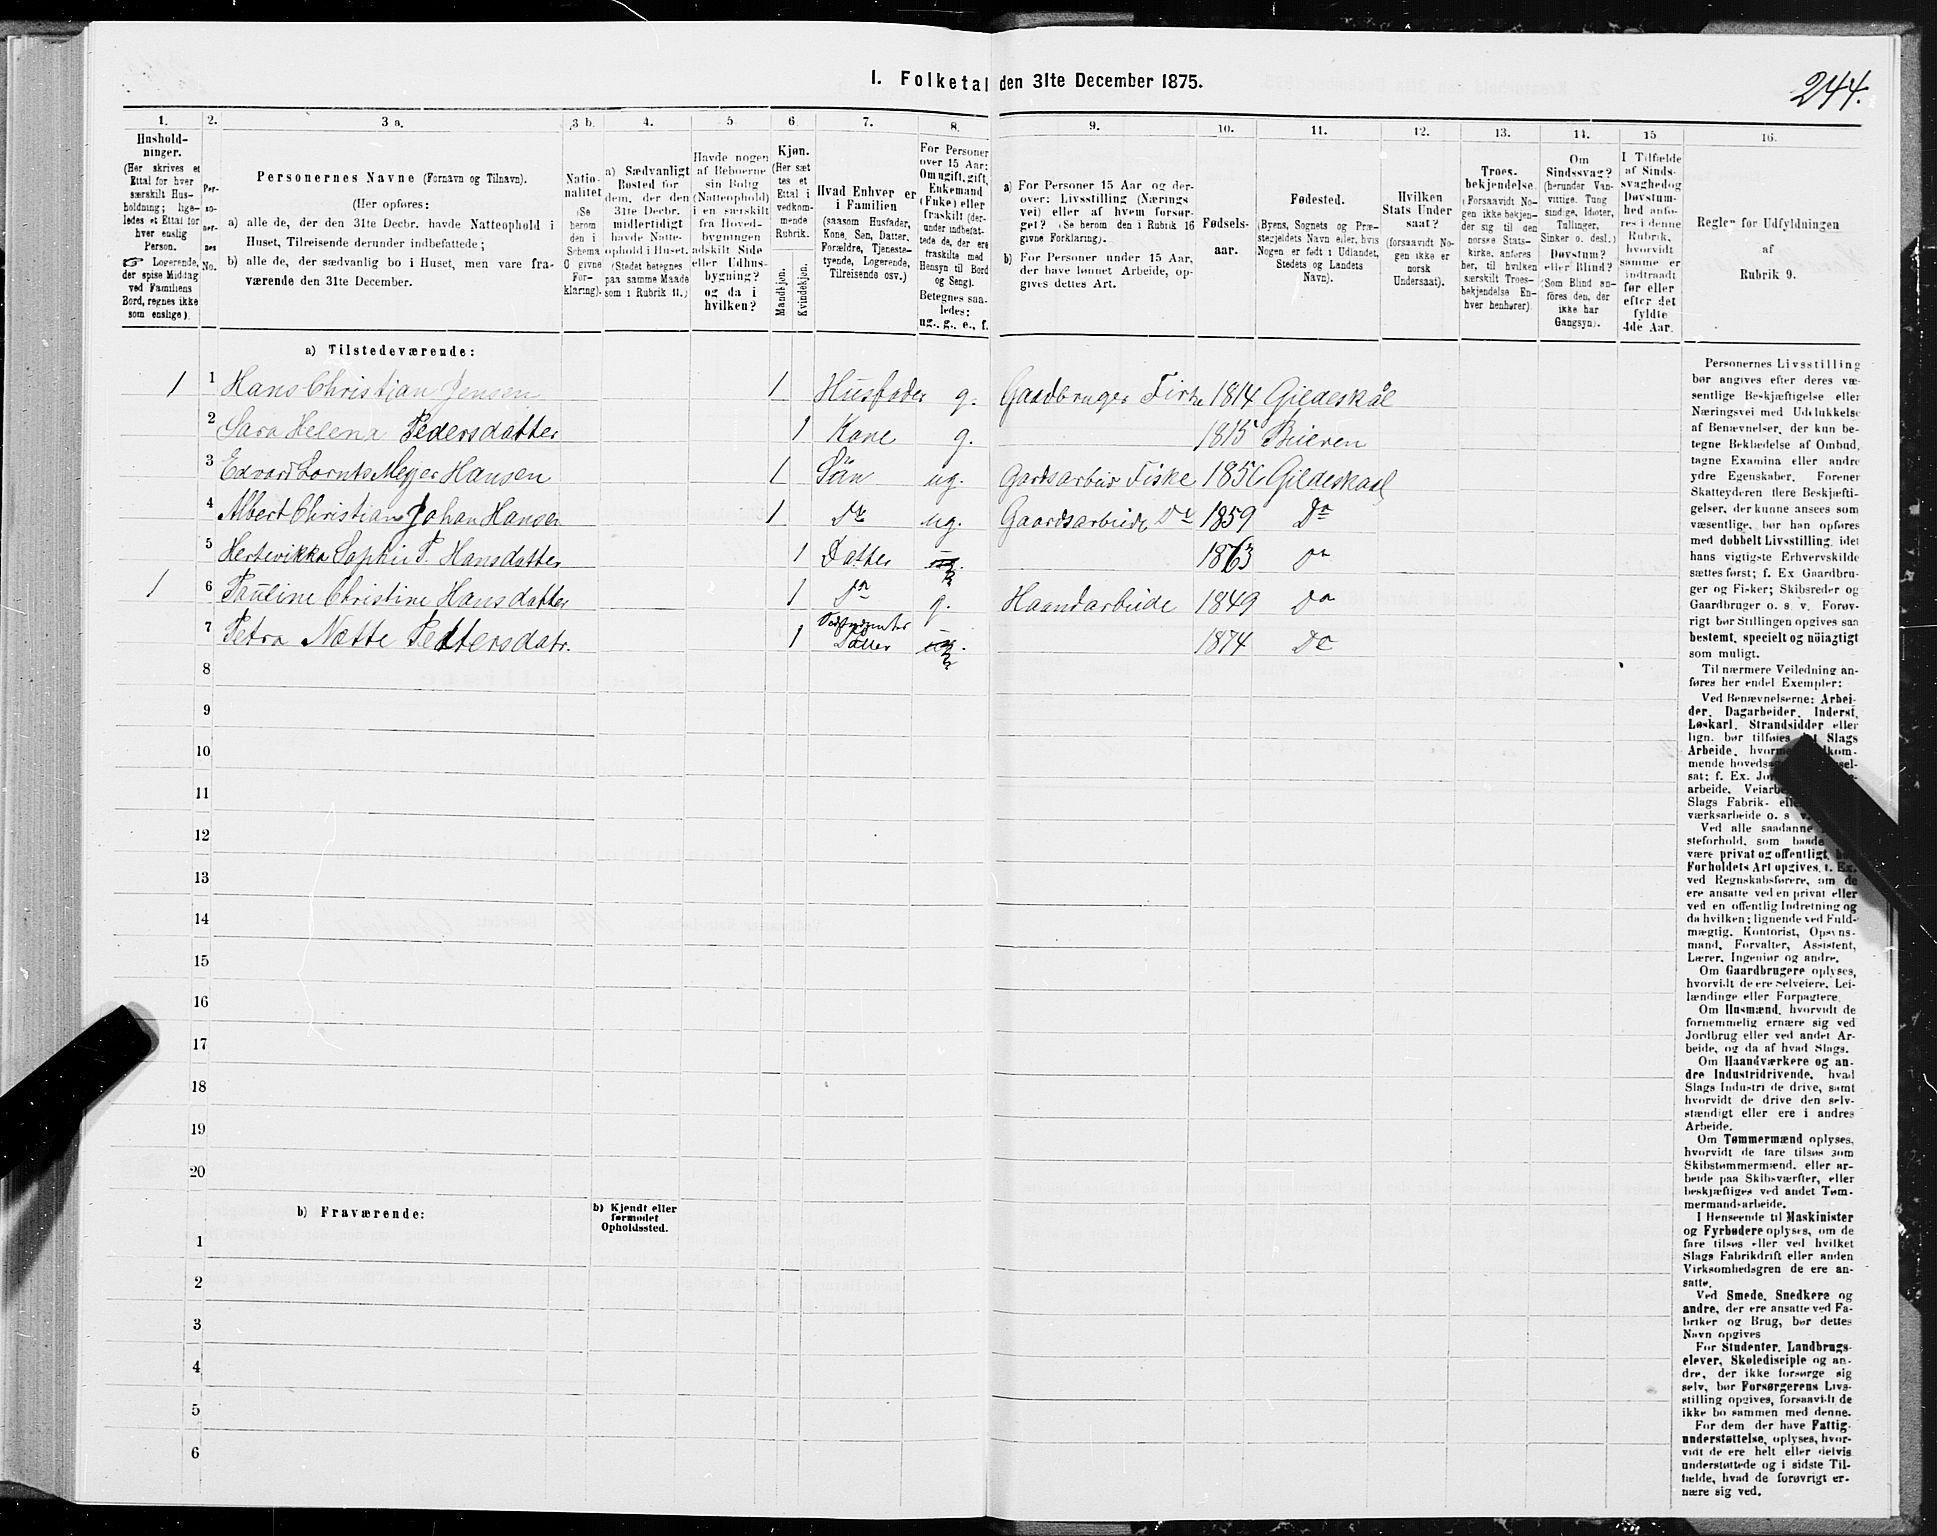 I. Folketal den 31te December 1875.
244.
1. 2. 3 a. 3 b. 4. 5 6 7. 8. 9. 10. 11. 12. 13. 14. 15 16.
Hushold-
ninger.
(Her skrives et
Ettal for hver
særskilt Hus-
holdning; lige-
ledes et Ettal for
hver enslig
Person.
☞ Logerende,
der spise Middag
ved Familiens
Bord, regnes ikke
som enslige).
Per-
so-
ner-
nes
No.
Personernes Navne (Fornavn og Tilnavn).
(Her opføres:
a) alle de, der den 31te Decbr. havde Natteophold i
Huset, Tilreisende derunder indbefattede;
b) alle de, der sædvanlig bo i Huset, men vare fra-
værende den 31te December.
Natio-
nalitet
(Se
herom
den i
Schema
O givne
For-
klaring).
a) Sædvanligt
Bosted for
dem, der den
31te Decbr.
midlertidigt
havde Natte-
ophold i Huset.
(Stedet betegnes
paa samme Maade
som i Rubrik 11.)
Havde nogen
af Beboerne
sin Bolig
(Natteophold)
i en særskilt
fra Hoved-
bygningen
adskilt Side
eller Udhus-
bygning?
og da i
hvilken?
Kjøn.
(Her sæt
tes et
Ettal i
vedkom-
mende
Rubrik.
Mandkjøn.
Kvindekjøn.
Hvad Enhver er
i Familien
(saasom Husfader,
Kone, Søn, Datter,
Forældre, Tjeneste-
tyende, Logerende,
Tilreisende osv.)
For Personer
over 15 Aar:
Om ugift, gift,
Enkemand
(Enke) eller
fraskilt (der-
under indbefat-
tede de, der ere
fraskilte med
Hensyn til Bord
og Seng).
Betegnes saa-
ledes:
ug., g., e., f.
a) For Personer 15 Aar og der-
over: Livsstilling (Nærings
vei) eller af hvem forsør-
get? (Se herom den i Rubrik 16
givne Forklaring).
b) For Personer under 15 Aar,
der have lønnet Arbeide, op-
gives dettes Art.
Fødsels-
aar.
Fødested.
(Byens, Sognets og Præ-
stegjeldets Navn eller, hvis
Nogen er født i Udlandet,
Stedets og Landets
Navn).
Hvilken
Stats Under
saat?
(forsaavidt No-
gen ikke er
norsk
Undersaat).
Troes-
bekjendelse.
(Forsaavidt No-
gen ikke bekjen-
der sig til den
norske Stats-
kirke, anføres
her, til hvilken
særskilt Troes-
bekjendelse En-
hver henhører)
Om
Sindssvag?
(herunder Van-
vittige, Tung
sindige, Idioter,
Tullinger,
Sinker o. desl.)
Døvstum?
eller Blind?
(Som Blind an-
føres den, der
ikke har
Gangsyn).
I Tilfælde
af Sinds-
svaghed og
Døvstum-
hed anfø-
res i denne
Rubrik,
hvorvidt
samme er
indtraadt
før eller
efter det
fyldte
4de Aar.
Regler for Udfyldningen
af
Rubrik 9.
a) Tilstedeværende:
1 1 Hans Christian Jensen 1 Husfader g. Gaardbruger 1814 Gildeskål
2 Sara Helena Pedersdatter 1 Kone g. 1815 Beieren
3 Edvard Lornts Meyer Hansen 1 Sön ug. Gardsarbeid Fiske 1856 Gildeskaal
4 Albert Christian Johan Hansen 1 Do ug. Gaardsarbeide Do 1859 Do
5 Hertevikka Sophie P. Hansdatter 1 Datter 1863 Do
1 6 Pauline Christine Hansdatter 1 Do g. Haandarbeide 1849 Do
7 Petra Nætte Pettersdatr. 1 Datter 1874 Do
8
9
10
11
12
13
14
15
16
17
18
19
20
b) Fraværende:
b) Kjendt eller
formodet
Opholdssted.
1
2
3
4
5
6
Personernes Livsstilling
bør angives efter deres væ-
sentlige Beskjæftigelse eller
Næringsvei med Udelukkelse
af Benævnelser, der kun be-
tegne Beklædelse af Ombud,
tagne Examina eller andre
ydre Egenskaber. Forener
Skatteyderen flere Beskjæfti-
gelser, der kunne ansees som
væsentlige, bør han opføres
med dobbelt Livsstilling, idet
hans vigtigste Erhvervskilde
sættes først; f. Ex Gaardbru-
ger og Fisker; Skibsreder og
Gaardbruger o. s. v. Forøv-
rigt bør Stillingen opgives saa
bestemt, specielt og nöiagtigt
som muligt.
Til nærmere Veiledning an-
føres her endel Exempler:
Ved Benævnelserne: Arbei-
der, Dagarbeider, Inderst,
Løskarl, Strandsidder eller
lign. bør tilføies Slags
Arbeide,
mende
sat; f. Ex.
arbeide,
Slags Fabrik-
værksarbeide o. s
Ved alle saadanne
steforhold, som baade
være privat og offentligt,
Forholdets Art opgives, f. Ex.
ved Regnskabsførere, om de
ere ansatte ved en privat eller
ved en offentlig Indretning og
da hvilken; lignende ved Fuld-
mægtig, Kontorist, Opsyns-
mand, Forvalter, Assistent,
Lærer, Ingeniør og andre.
Om Gaardbrugere oplyses,
hvorvidt de ere Selveiere, Lei-
lændinge eller Forpagtere.
Om Husmænd, hvorvidt de
fornemmelig ernære sig ved
Jordbrug eller ved andet Ar-
beide, og da af hvad Slags.
Om Haandværkere og an-
dre Industridrivende, hvad
Slags Industri de drive, samt
hvorvidt de drive den selv-
stændigt eller ere i andres
Arbeide.
Om Tømmermænd oplyses,
hvorvidt de fare tilsøs som
Skibstømmermænd, eller ar-
beide paa Skibsværfter, eller
beskjæftiges ved andet Tøm-
mermandsarbeide.
I Henseende til Maskinister
og Fyrbødere oplyses, om de
fare tilsøs eller ved hvilket
Slags Fabrikdrift eller anden
Virksomhedsgren de ere an-
satte.
Ved Smede, Snedkere og
andre, der ere ansatte ved Fa-
briker og Brug, bør dettes
Navn opgives
For Studenter, Landbrugs-
elever, Skoledisciple og an-
dre, der ikke forsørge sig
selv, bør Forsørgerens Livs-
stilling opgives, forsaavidt de
ikke bo sammen med denne.
For dem der have Fattig-
understøttelse, oplyses, hvor-
vidt de ere helt eller delvis
understøttede og i sidste Til-
fælde, hvad de forøvrigt er-
nære sig ved.